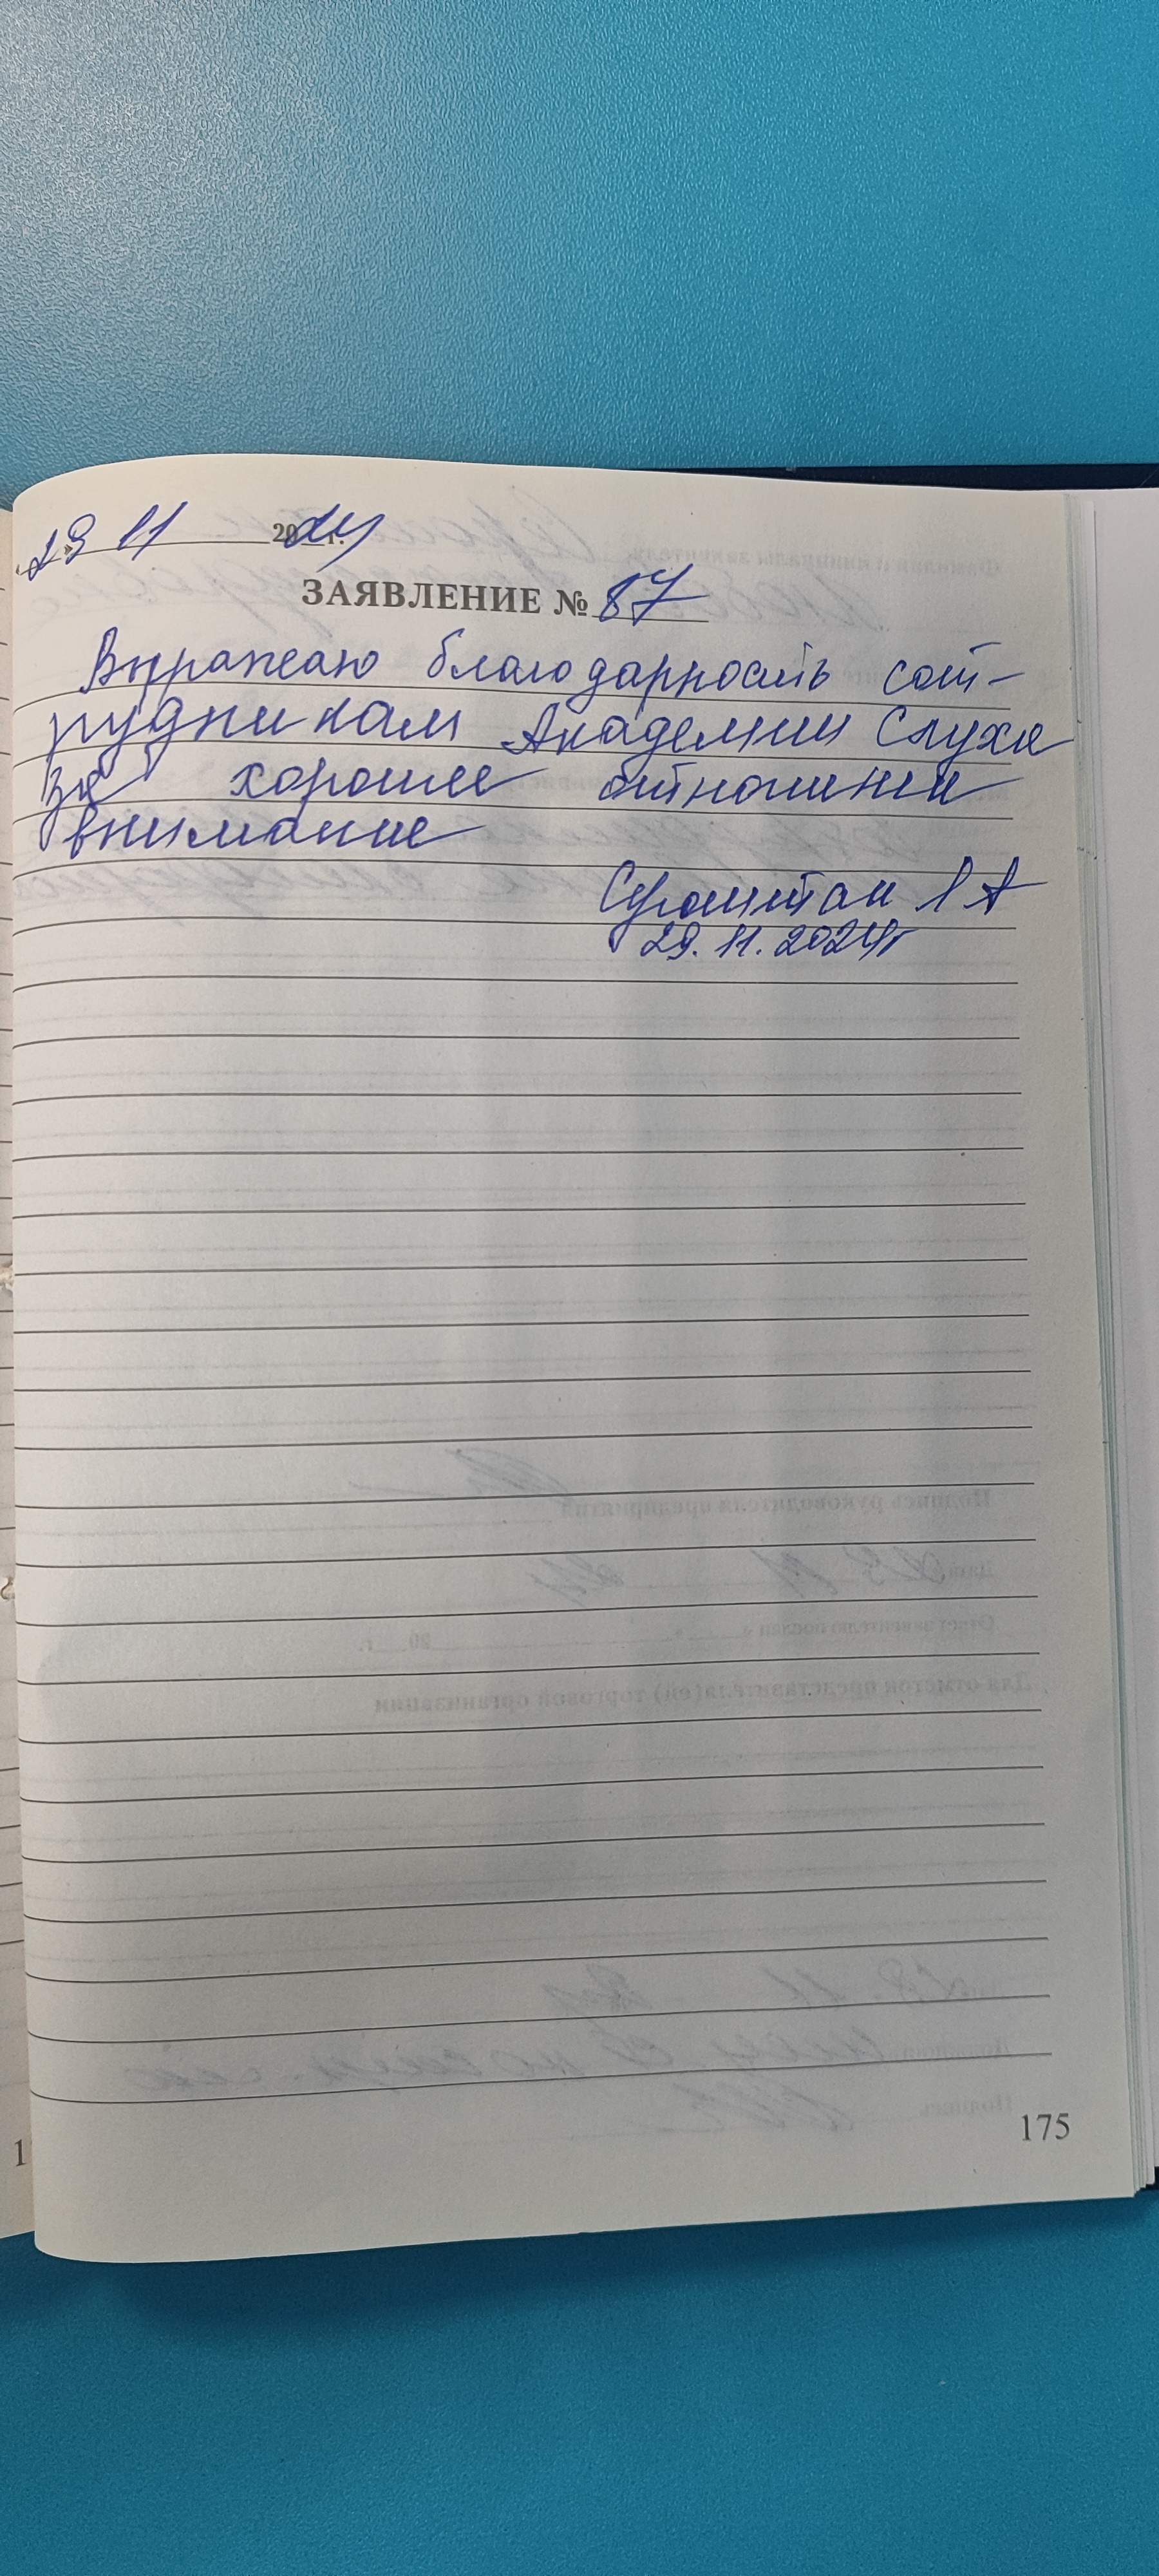 29 11 2024 г.
ЗАЯВЛЕНИЕ № 87
Выражаю благодарность сот-
рудникам Академии Слуха
за хорошее отношение
внимание
Л А
29.11.2024г
175